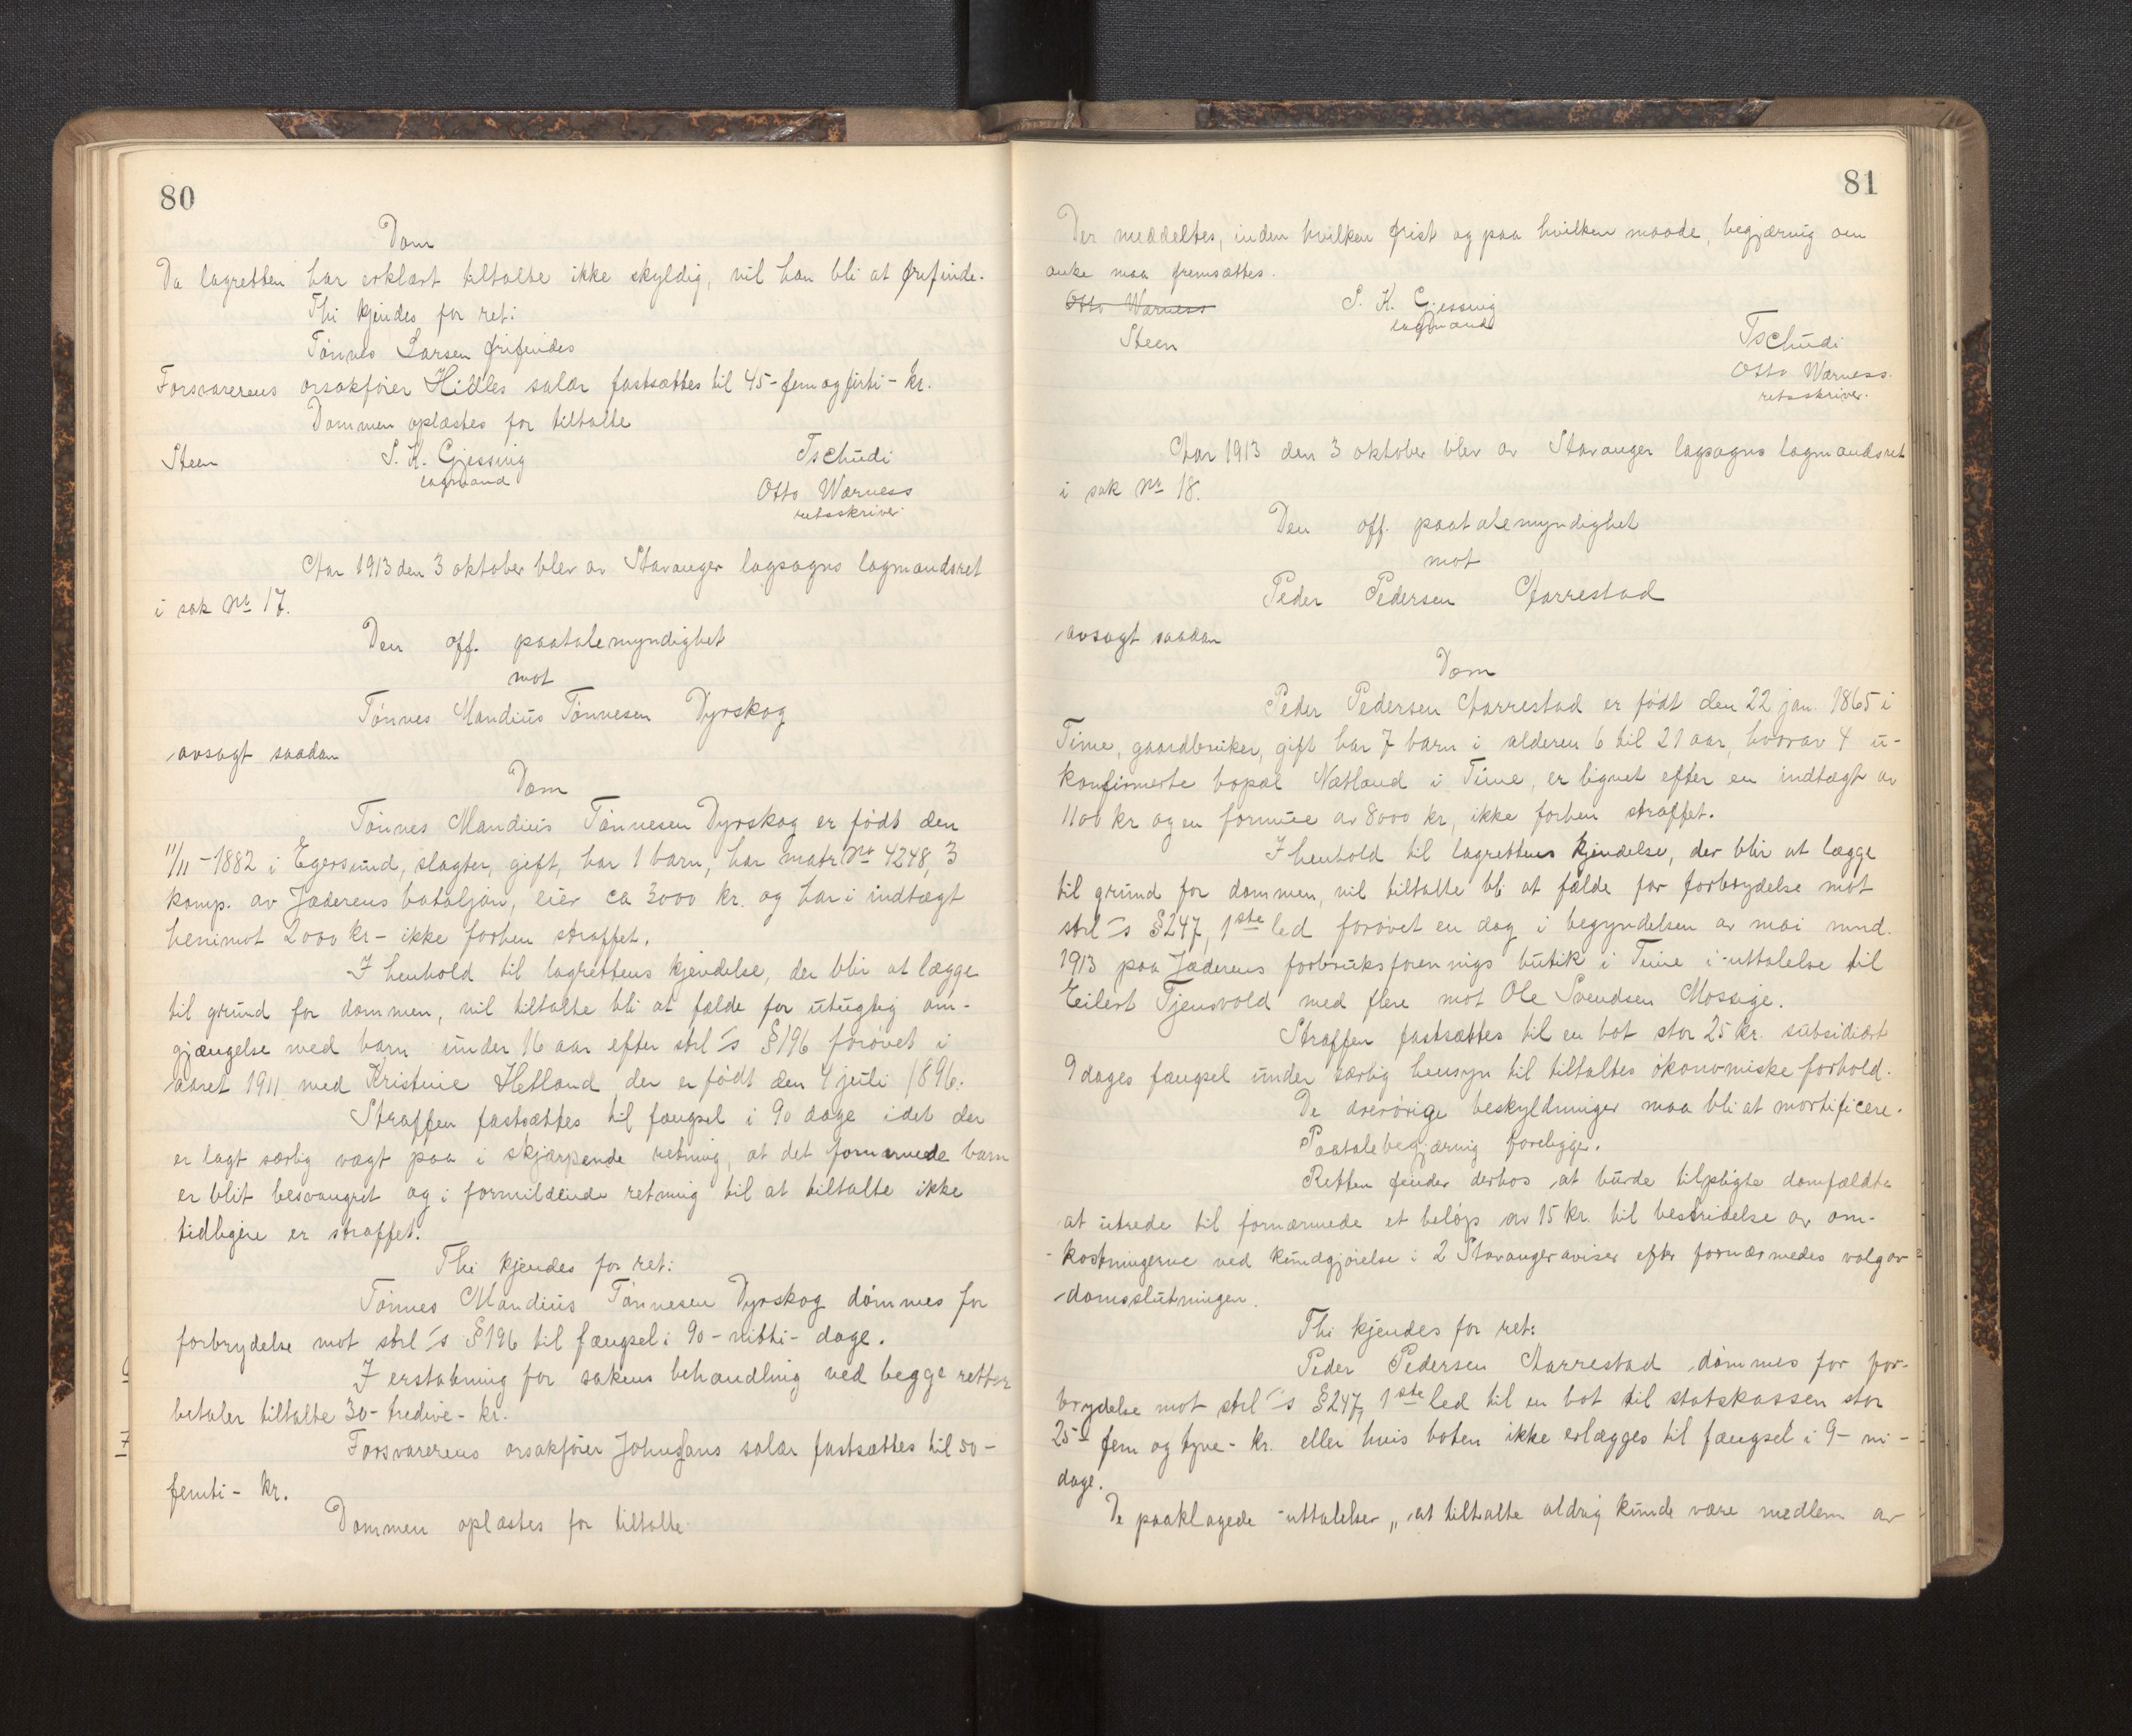 80
Dom
Da lagretten har erklært tiltalte ikke skyldig, vil han bli at frifinde.
Thi kjendes for ret:
Tönnes Larsen frifindes
Forsvarerens orsakförer Hilles salær fastsættes til 45 - fem og firti - kr.
Dommen oplæstes for tiltalte
Steen S. K. Gjessing Tschudi
lagmand
Otto Wærness
retsskriver.
Aar 1913 den 3 oktober blev av Stavanger lagsogns lagmandsret
i sak Nr 17.
Den off. paatalemyndighet
mot
Tönnes Mandius Tönnesen Dyrskog
avsagt saadan
Dom
Tönnes Mandius Tönnesen Dyrskog er födt den
11/11 - 1882 i Egersund, slagter, gift, har 1 barn, har matr Nr 4248, 3
komp. av Jæderens bataljon, eier ca 3000 kr. og har i indtægt
henimot 2000 kr - ikke forhen straffet.
I henhold til lagrettens kjendelse, der blir at lægge
til grund for dommen, vil tiltalte bli at fælde for utugtig om-
gjængelse med barn under 16 aar efter strl's § 196 forövet i
aaret 1911 med Kristine Hetland der er födt den 4 juli 1896.
Straffen fastsættes til fængsel i 90 dage idet der
er lagt særlig vægt paa i skjærpende retning, at det fornærmede barn
er blit besvangret og i formildende retning til at tiltalte ikke
tidligere er straffet.
Thi kjendes for ret:
Tönnes Mandius Tönnesen Dyrskog dömmes for
forbrydelse mot strl's § 196 til fængsel i 90 - nitti - dage.
I erstatning for sakens behandling ved begge retter
betaler tiltalte 30 - tredive - kr.
Forsvarerens orsakförer Johnsens salær fastsættes til 50 -
femti - kr.
Dommen oplæstes for tiltalte.
81
Der meddeltes, inden hvilken frist og paa hvilken maade, begjæring om
anke maa fremsættes.
Otto Wærness S. K. Gjessing
lagmand
Steen Tschudi
Otto Wærness.
retsskriver.
Aar 1913 den 3 oktober blev av Stavanger lagsogns lagmandsret
i sak Nr 18.
Den off. paatalemyndighet
mot
Peder Pedersen Aarrestad
avsagt saadan
Dom
Peder Pedersen Aarrestad er födt den 22 jan. 1865 i
Time, gaardbruker, gift har 7 barn i alderen 6 til 21 aar, hvorav 4 u-
konfirmerte bopæl Nætland i Time, er lignet efter en indtægt av
1100 kr og en formue av 8000 kr, ikke forhen straffet.
I henhold til lagrettens kjendelse, der blir at lægge
til grund for dommen, vil tiltalte bli at fælde for forbrydelse mot
strl's § 247, 1ste led forövet en dag i begyndelsen av mai mnd.
1913 paa Jæderens forbruksforenings butik i Time i uttalelse til
Eilert Tjensvold med flere mot Ole Svendsen Mossige.
Straffen fastsættes til en bot stor 25 kr. subsidiært
9 dages fængsel under særlig hensyn til tiltaltes ökonomiske forhold.
De överörige beskyldninger maa bli at mortificere.
Paatalebegjæring foreligge.
Retten finder derhos at burde tilpligte domfældte
at utrede til fornærmede et belöp av 15 kr. til bestridelse av om-
kostningerne ved kundgjörelse i 2 Stavangeraviser efter fornærmedes valg av
domsslutningen.
Thi kjendes for ret:
Peder Pedersen Aarrestad dömmes for for-
brydelse mot strl's § 247, 1ste led til en bot til statskassen stor
25 - fem og tyve - kr. eller hvis boten ikke erlægges til fængsel i 9 - ni -
dage.
De paaklagede uttalelser „at tiltalte aldrig kunde være medlem av